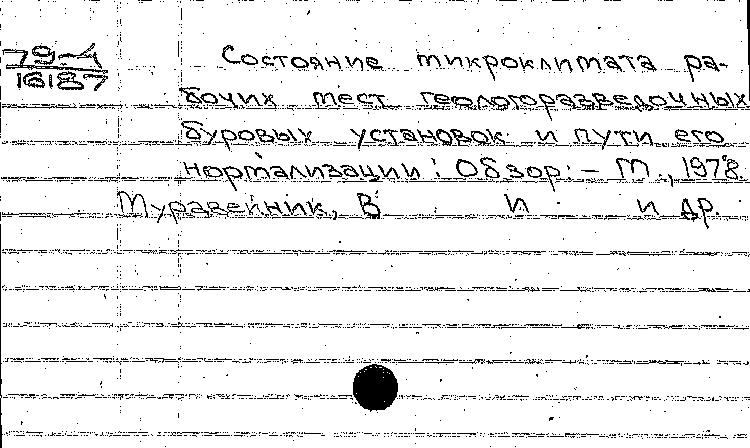 79-4
16187
Состояние микроклимата ра-
бочих мест геологоразведочных
буровых установок и пути его
нормализации: Обзор. - М., 1978.
Муравейник, В. И. и др.